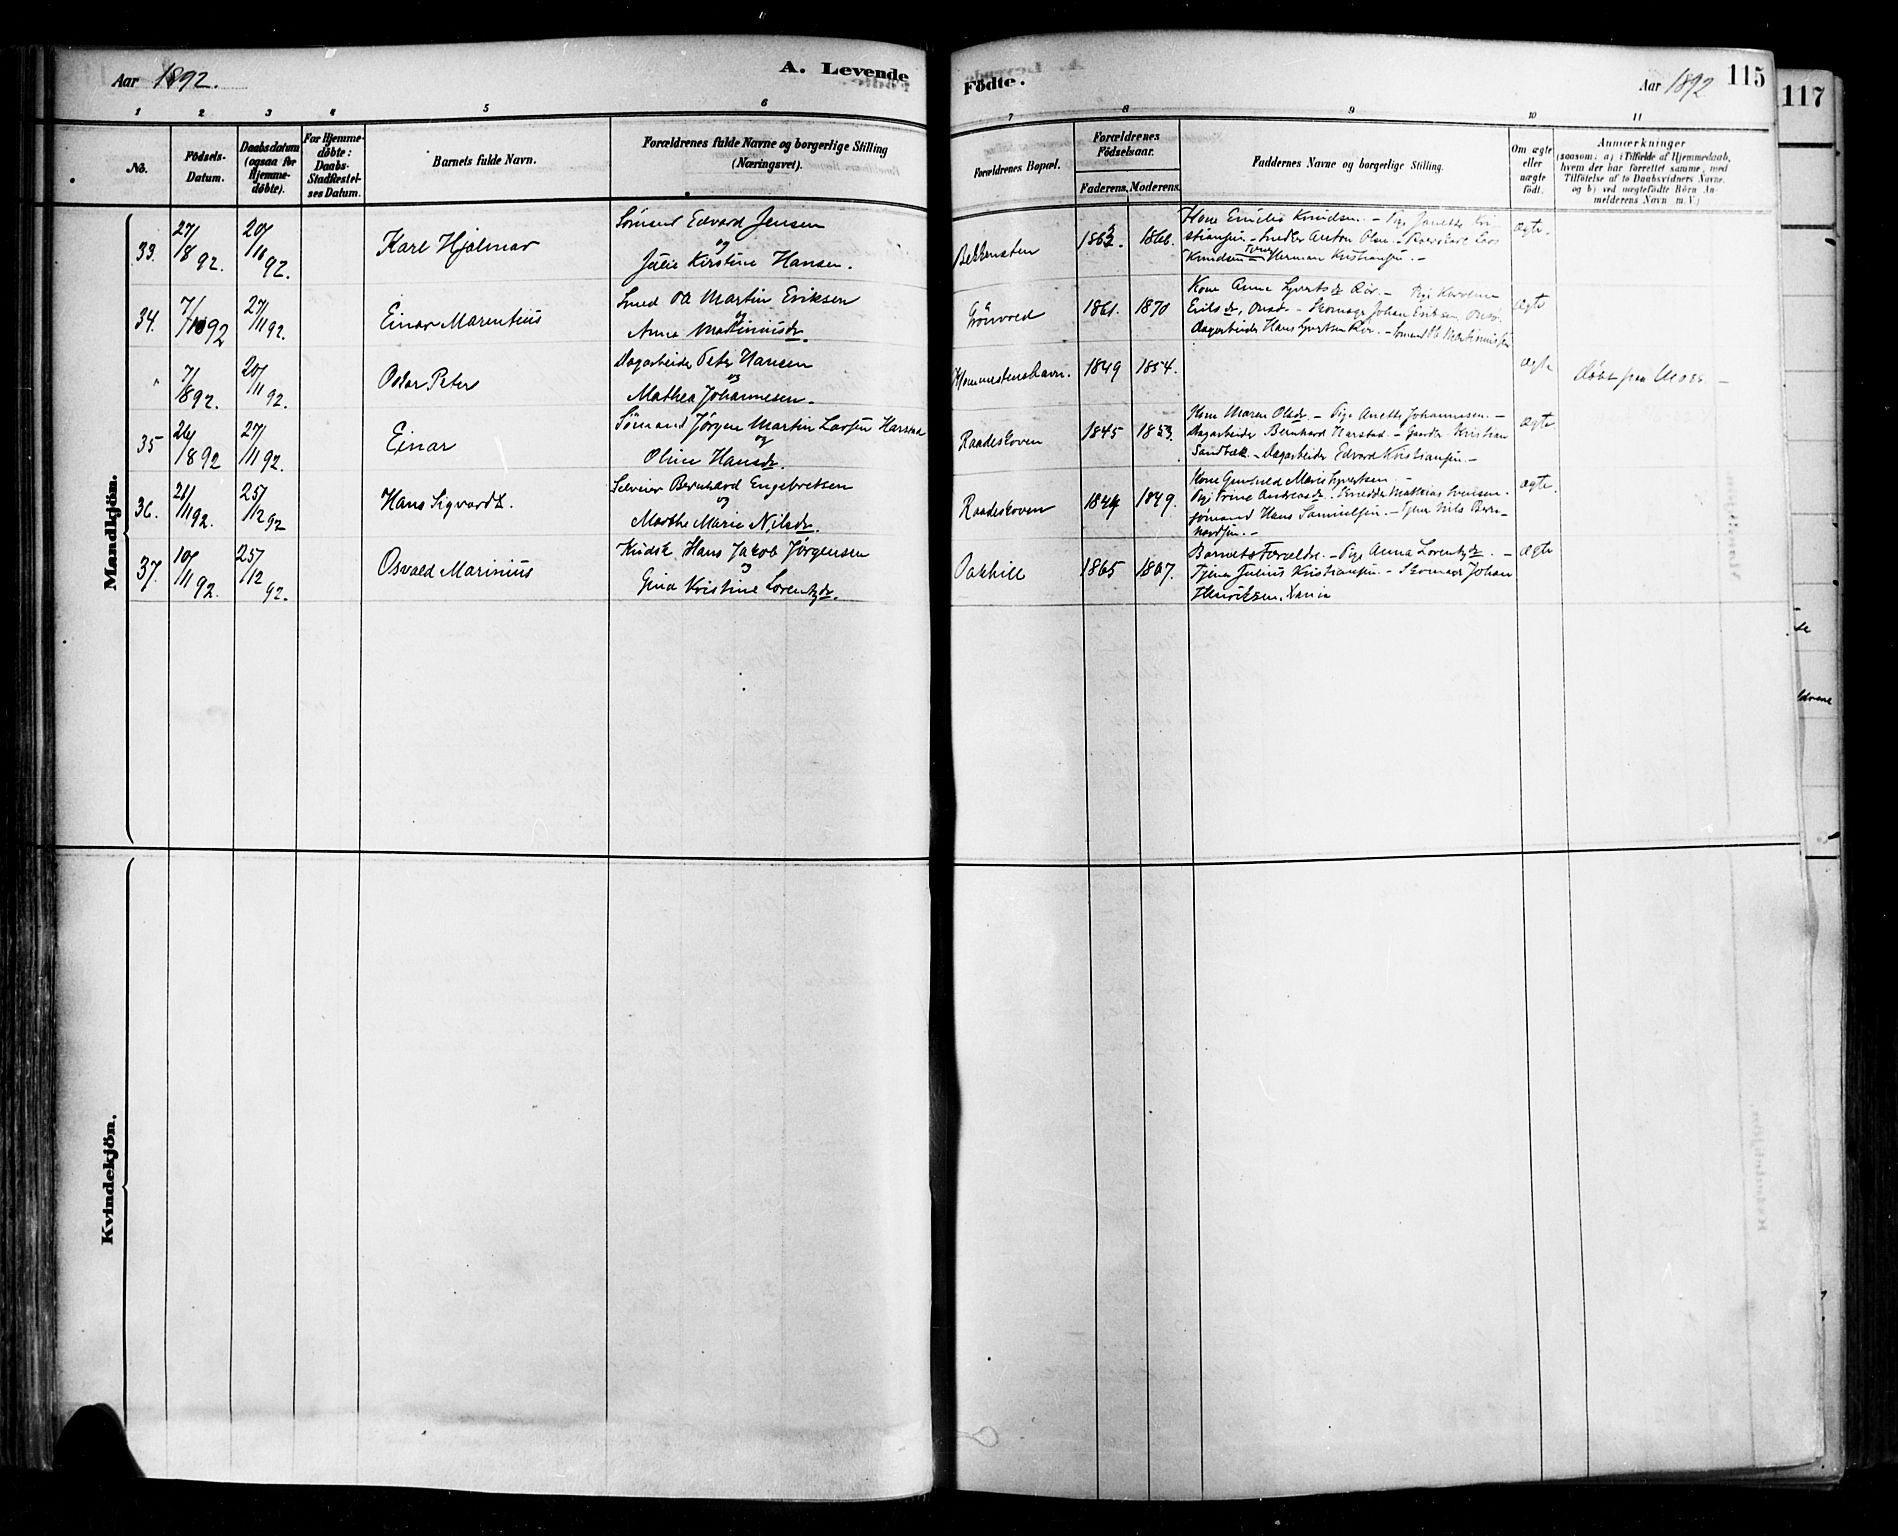 Aar 1892.
A. Levende
Födte.
Aar 1892
115
117
1 2 3 4 5 6 7 8 9 10 11
No.
Födsels-
Datum.
Daabsdatum
(ogsaa for
Hjemme-
döbte).
For Hjemme-
döbte:
Daabs-
Stadfæstel-
ses Datum.
Barnets fulde Navn.
Forældrenes fulde Navne og borgerlige Stilling
(Næringsvei).
Forældrenes Bopæl.
Forældrenes
Födselsaar.
Faderens. Moderens.
Faddernes Navne og borgerlige Stilling.
Om ægte
eller
uægte
födt.
Anmærkninger
(saasom: a) i Tilfælde af Hjemmedaab,
hvem der har forrettet samme, med
Tilföielse af to Daabsvidners Navne.
og b) ved uægtefödte Börn An-
melderens Navn m. V.)
Mandkjön.
33. 27/8 92. 20/11 92. Karl Hjalmar
Sömand Edvard Jensen
og
Julie Kirstine Hansen.
Bekkensten 1863. 1866.
Kone Emilie Knudsen. - Pige Janette Kri
stiansen. - Snedker Anton Olsen. - Lars
Knudsen Herman Kristiansen. -
Ægte.
34. 7/10 92 27/11 92. Einar Marentius
Smed Ole Martin Eriksen
og
Anne Martinusdr.
Grönvold 1861. 1870
Kone Anne Syvertsdr Rör. - Pige Karoline
Erilsdr, Onsö. - Skomager Johan Eriksen, Onsö.
Dagarbeider Hans Syvertsen Rör. - Sömand Ole Martinussen
Ægte
" 7/8 92. 20/11 92. Oskar Peter
Dagarbeider Peter Hansen
og
Mathea Johannesen.
1849 1854.
Ægte
Döbt paa Moss. -
35 26/8 92 27/11 92. Einar
Sömand Jörgen Martin Larsen Harstad
og
Oline Hansdr.
Raadeskoven 1845 1853.
Kone Maren Olsdr. - Pige Anette Johannesen. -
Dagarbeider Bernhard Harstad - Gaardbr Kristian
Sandbæk. - Dagarbeider Edvard Kristiansen. -
Ægte
36. 21/11 92. 25/12 92 Hans Sigvardt.
Bernhard Engebretsen
og
Marthe Marie Nilsdr.
Raadeskoven 1849 1849.
Kone Gunhild Marie Syvertsen. -
Pige Trine Andreasdr. Snedker Mathias Svensen.
Sömand Hans Samuelsen. - Tjener Nils Bern-
hardsen. -
Ægte.
37. 10/11 92. 25/12 92. Osvald Marinius
Kudsk Hans Jakob Jörgensen
og
Gina Kristine Lorentzdr.
Oakhill 1865 1867.
Barnets Forældre. - Pige Anna Lorentzdr. -
Tjener Julius Kristiansen. - Skomager Johan
Henriksen,
Ægte
Kvindekjön.